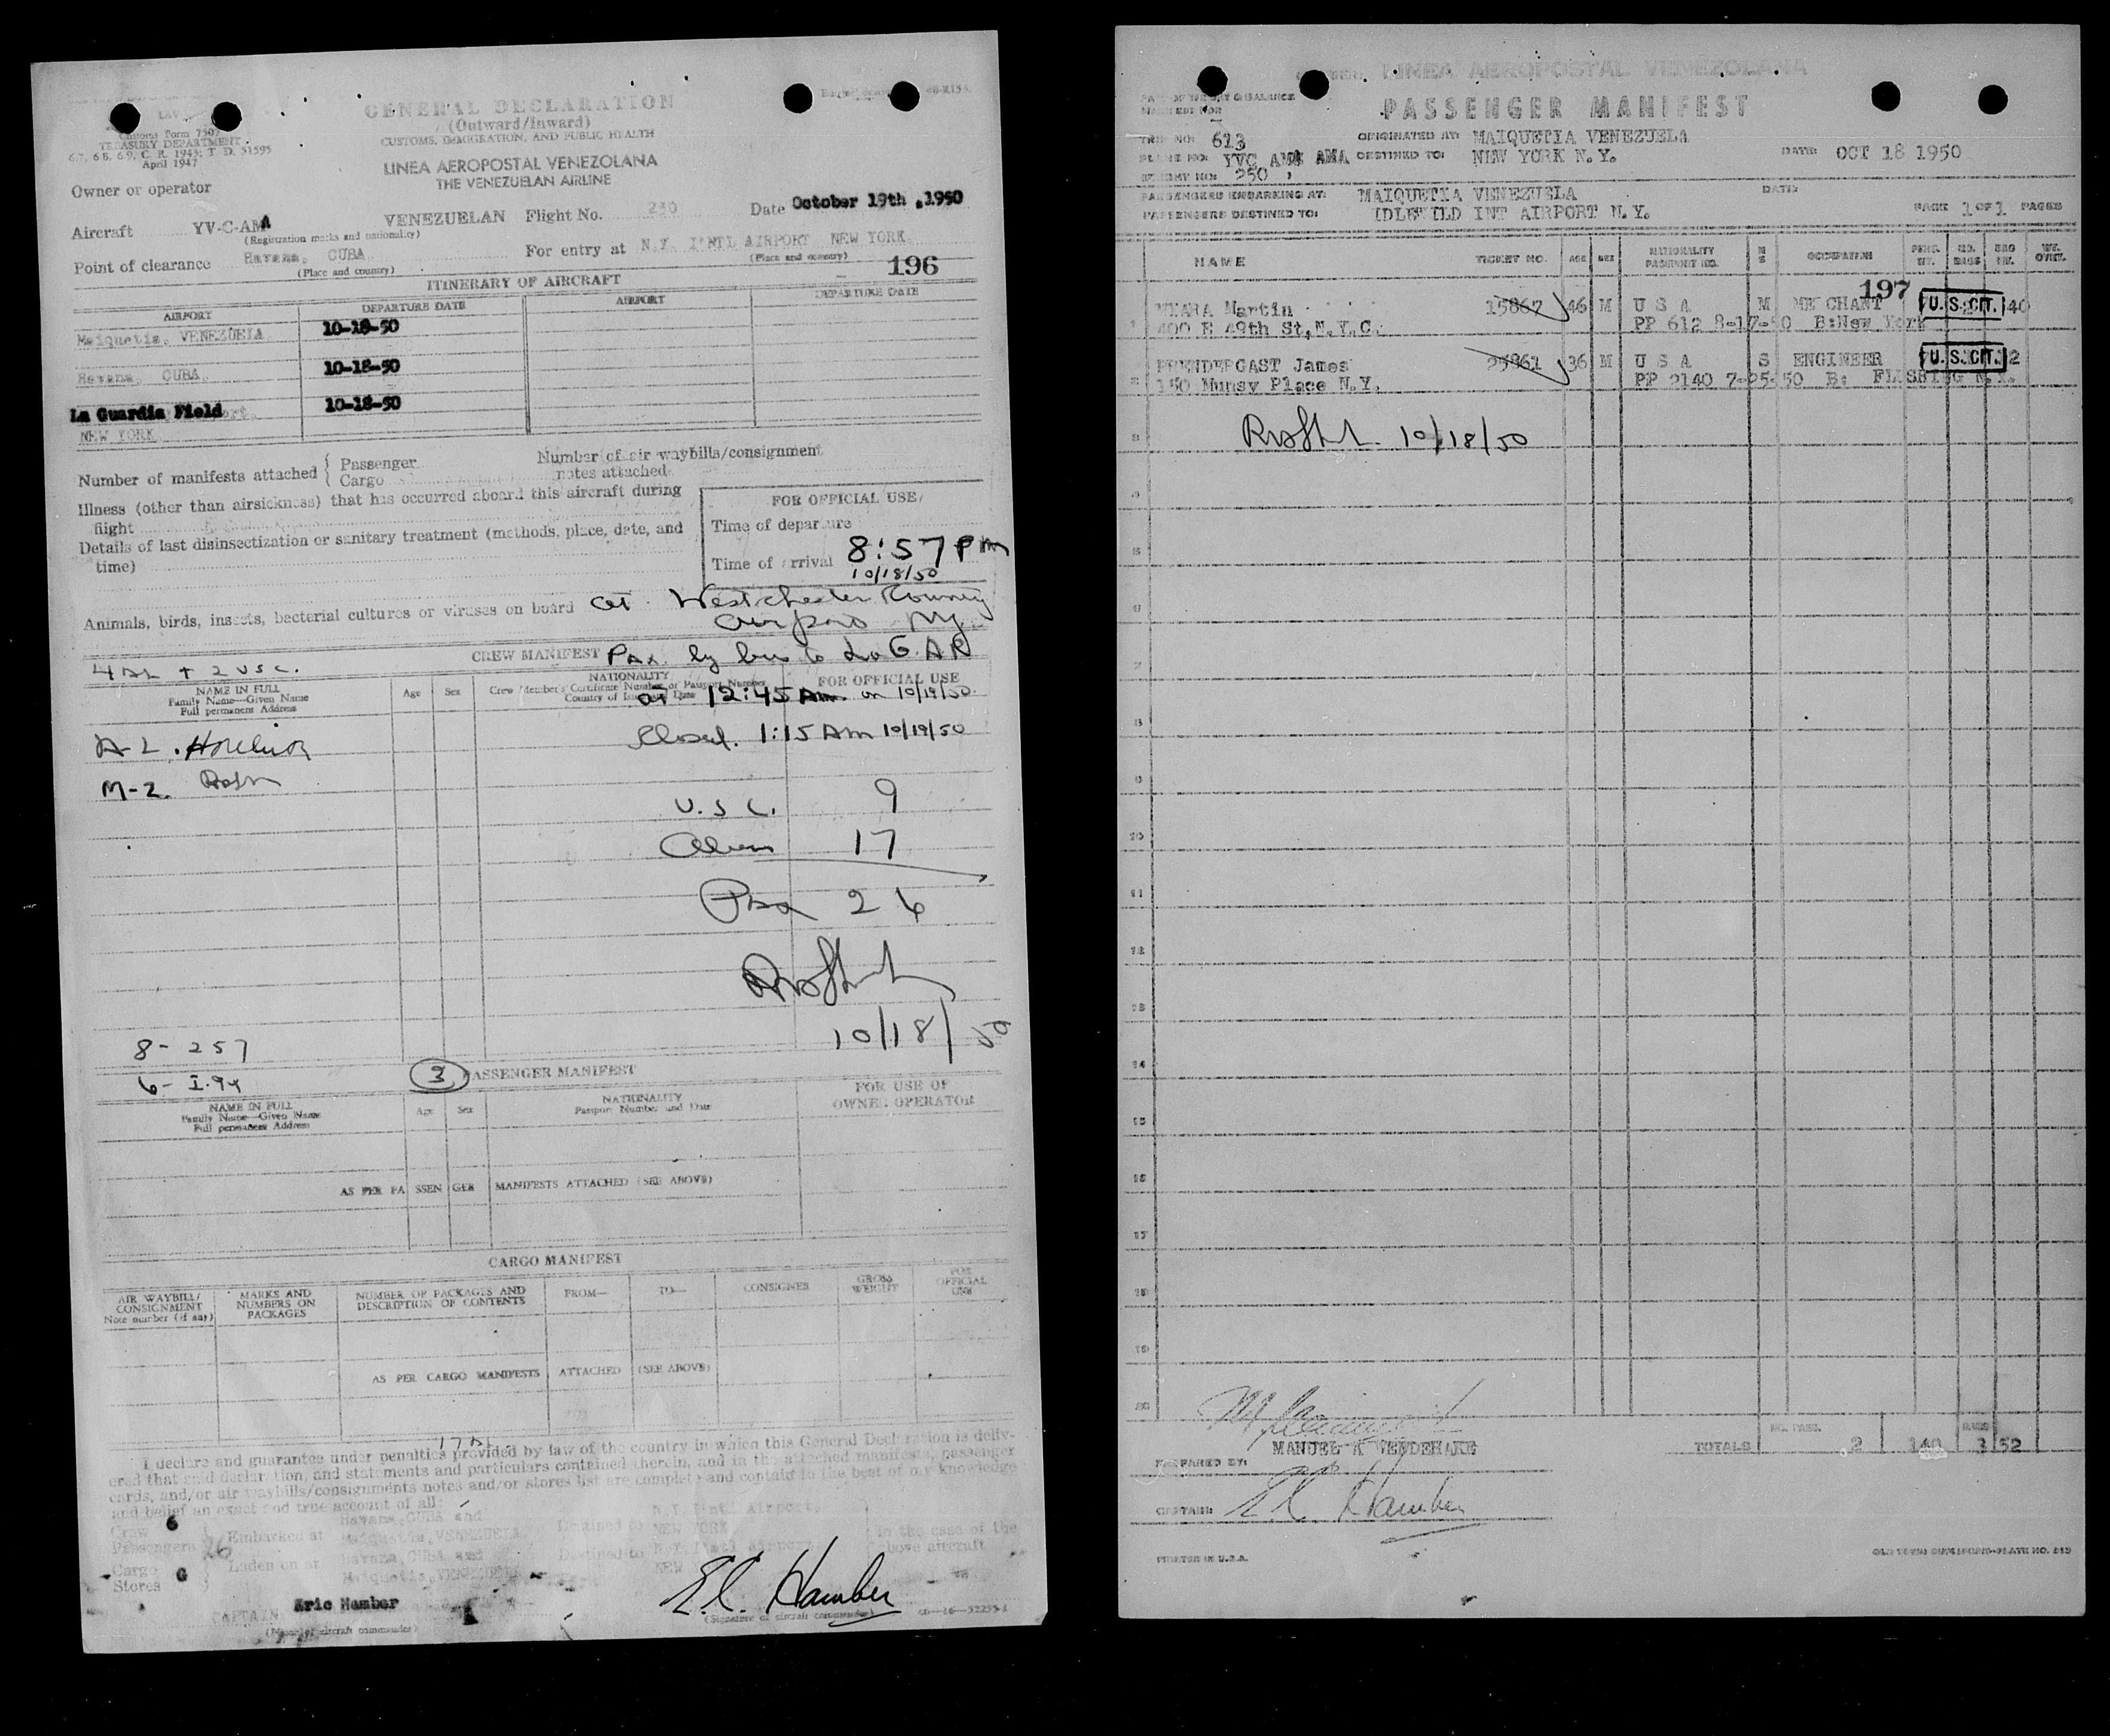 GENERAL DECLARATION
(Outward/Inward)
CUSTOMS, IMMIGRATION, AND PUBLIC HEALTH
Customs Form 7507
TREASURY DEPARTMENT
6.7, 6.8, 6.9, C. R. 1943; T. D. 51595
April 1947
LINEA AEROPOSTAL VENEZOLANA
THE VENEZUELAN AIRLINE
Owner or operator
Aircraft YV-C-AMA VENEZUELAN Flight No. 250 Date October 19th ,1950
(Registration marks and nationality)
Point of clearance Havana, CUBA For entry at N.Y. I'NTL AIRPORT NEW YORK
(Place and country) (Place and country)
196
ITINERARY OF AIRCRAFT
AIRPORT DEPARTURE DATE AIRPORT DEPARTURE DATE
Maiquetia, VENEZUELA 10-18-50
Havana, CUBA 10-18-50
La Guardia Field 10-18-50
NEW YORK
Number of manifests attached { Passenger
Cargo
Number of air waybills/consignment
notes attached
Illness (other than airsickness) that has occurred aboard this aircraft during
flight
Details of last disinsectization or sanitary treatment (methods, place, date, and
time)
FOR OFFICIAL USE
Time of departure
Time of arrival 8:57 PM
10/18/50
Animals, birds, insects, bacterial cultures or viruses on board at Westchester County
Airport NY
CREW MANIFEST Pax. by bus to LaG. AP
4 AL + 2 USC.
NAME IN FULL
Family Name—Given Name
Full permanent Address
Age Sex
NATIONALITY
Crew Member's Certificate Number or Passport Number
Country of Issue and Date
FOR OFFICIAL USE
at 12:45 Am. on 10/19/50.
Closed. 1:15 Am 10/19/50
A-L.
M-Z.
U.S.C. 9
Aliens 17
Pax 26
10/18/50
8- 257
6- I.94
3 PASSENGER MANIFEST
NAME IN FULL
Family Name—Given Name
Full permanent Address
Age Sex
NATIONALITY
Passport Number and Date
FOR USE OF
OWNER OPERATOR
AS PER PASSENGER MANIFESTS ATTACHED (SEE ABOVE)
CARGO MANIFEST
AIR WAYBILL/
CONSIGNMENT
Note number (if any)
MARKS AND
NUMBERS ON
PACKAGES
NUMBER OF PACKAGES AND
DESCRIPTION OF CONTENTS
FROM— TO— CONSIGNEE
GROSS
WEIGHT
FOR
OFFICIAL
USE
AS PER CARGO MANIFESTS ATTACHED (SEE ABOVE)
17 AL
I declare and guarantee under penalties provided by law of the country in which this General Declaration is deliv-
ered that said declaration, and statements and particulars contained therein, and in the attached manifests, passenger
cards, and/or air waybills/consignments notes and/or stores list are complete and contain to the best of my knowledge
and belief an exact and true account of all:
Crew 6
Passengers 26 Embarked at Havana, CUBA and Maiquetia, VENEZUELA Destined to N.Y. Int'l Airport, NEW YORK
Cargo
Stores Laden on at Havana, CUBA and Maiquetia, VENEZUELA Destined to N.Y. Int'l Airport NEW
in the case of the
above aircraft
CAPTAIN Eric Hamber
(Name of aircraft commander)
E.C. Hamber
(Signature of aircraft commander)
LINEA AEROPOSTAL VENEZOLANA
PASSENGER MANIFEST
TRIP NO: 613 ORIGINATED AT: MAIQUETIA VENEZUELA
PLANE NO: YVC AMA DESTINED TO: NEW YORK N.Y. DATE: OCT 18 1950
FLIGHT NO: 250
PASSENGERS EMBARKING AT: MAIQUETIA VENEZUELA DATE:
PASSENGERS DESTINED TO: IDLEWILD INT AIRPORT N.Y. PAGE 1 OF 1 PAGES
NAME TICKET NO. AGE SEX NATIONALITY PASSPORT NO. M S OCCUPATION PERS. WT. NO. BAGS BAG WT. WT. OVER.
197
1 Martin 15867 46 M U S A M MERCHANT U.S. CIT. 40
400 E 49th St, N.Y.C. PP 612 8-17-50 B:New York
2 PRENDERGAST James 25861 36 M U S A S ENGINEER U.S. CIT. 12
150 Munsy Place N.Y. PP 2140 7-25-50 B: FLUSHING N.Y.
3 10/18/50
4
5
6
7
8
9
10
11
12
13
14
15
16
17
18
19
20
TOTALS NO. PASS. 2 140 BAGS 3 52
PREPARED BY:
CAPTAIN: E.C. Hamber
PRINTED IN U.S.A.